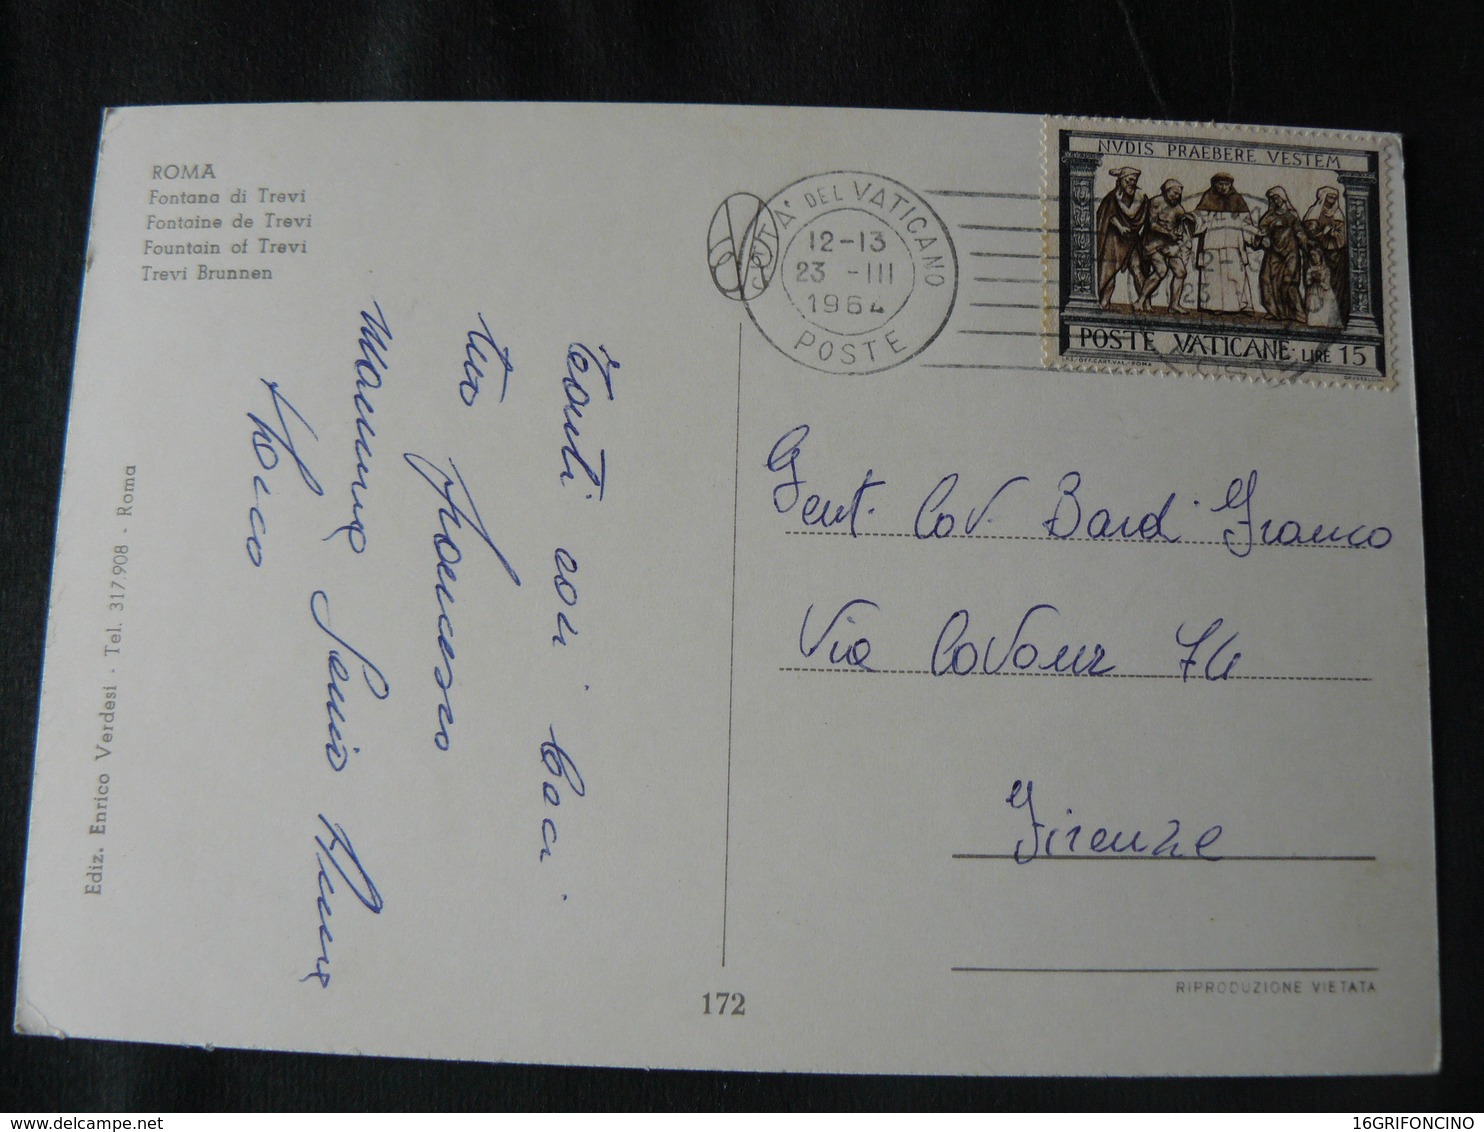 ROMA
Fontana di Trevi
Fontaine de Trevi
Fountain of Trevi
Trevi Brunnen
Tanti cari baci
tuo Francesco
Mamma
Ediz. Enrico Verdesi · Tel. 317.908 - Roma
172
CITTA' DEL VATICANO
12-13
23 -III
1964
POSTE
NVDIS PRAEBERE VESTEM
POSTE VATICANE · LIRE 15
Gent. Cav. Bardi Franco
Via Cavour 74
Firenze
RIPRODUZIONE VIETATA
16GRIFONCINO